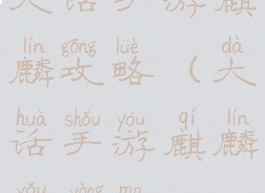 大话手游麒
lín gōng lüè dà
麟攻略（大
huà shǒu yóu qí lín
话手游麒麟
yǒu yòng ma